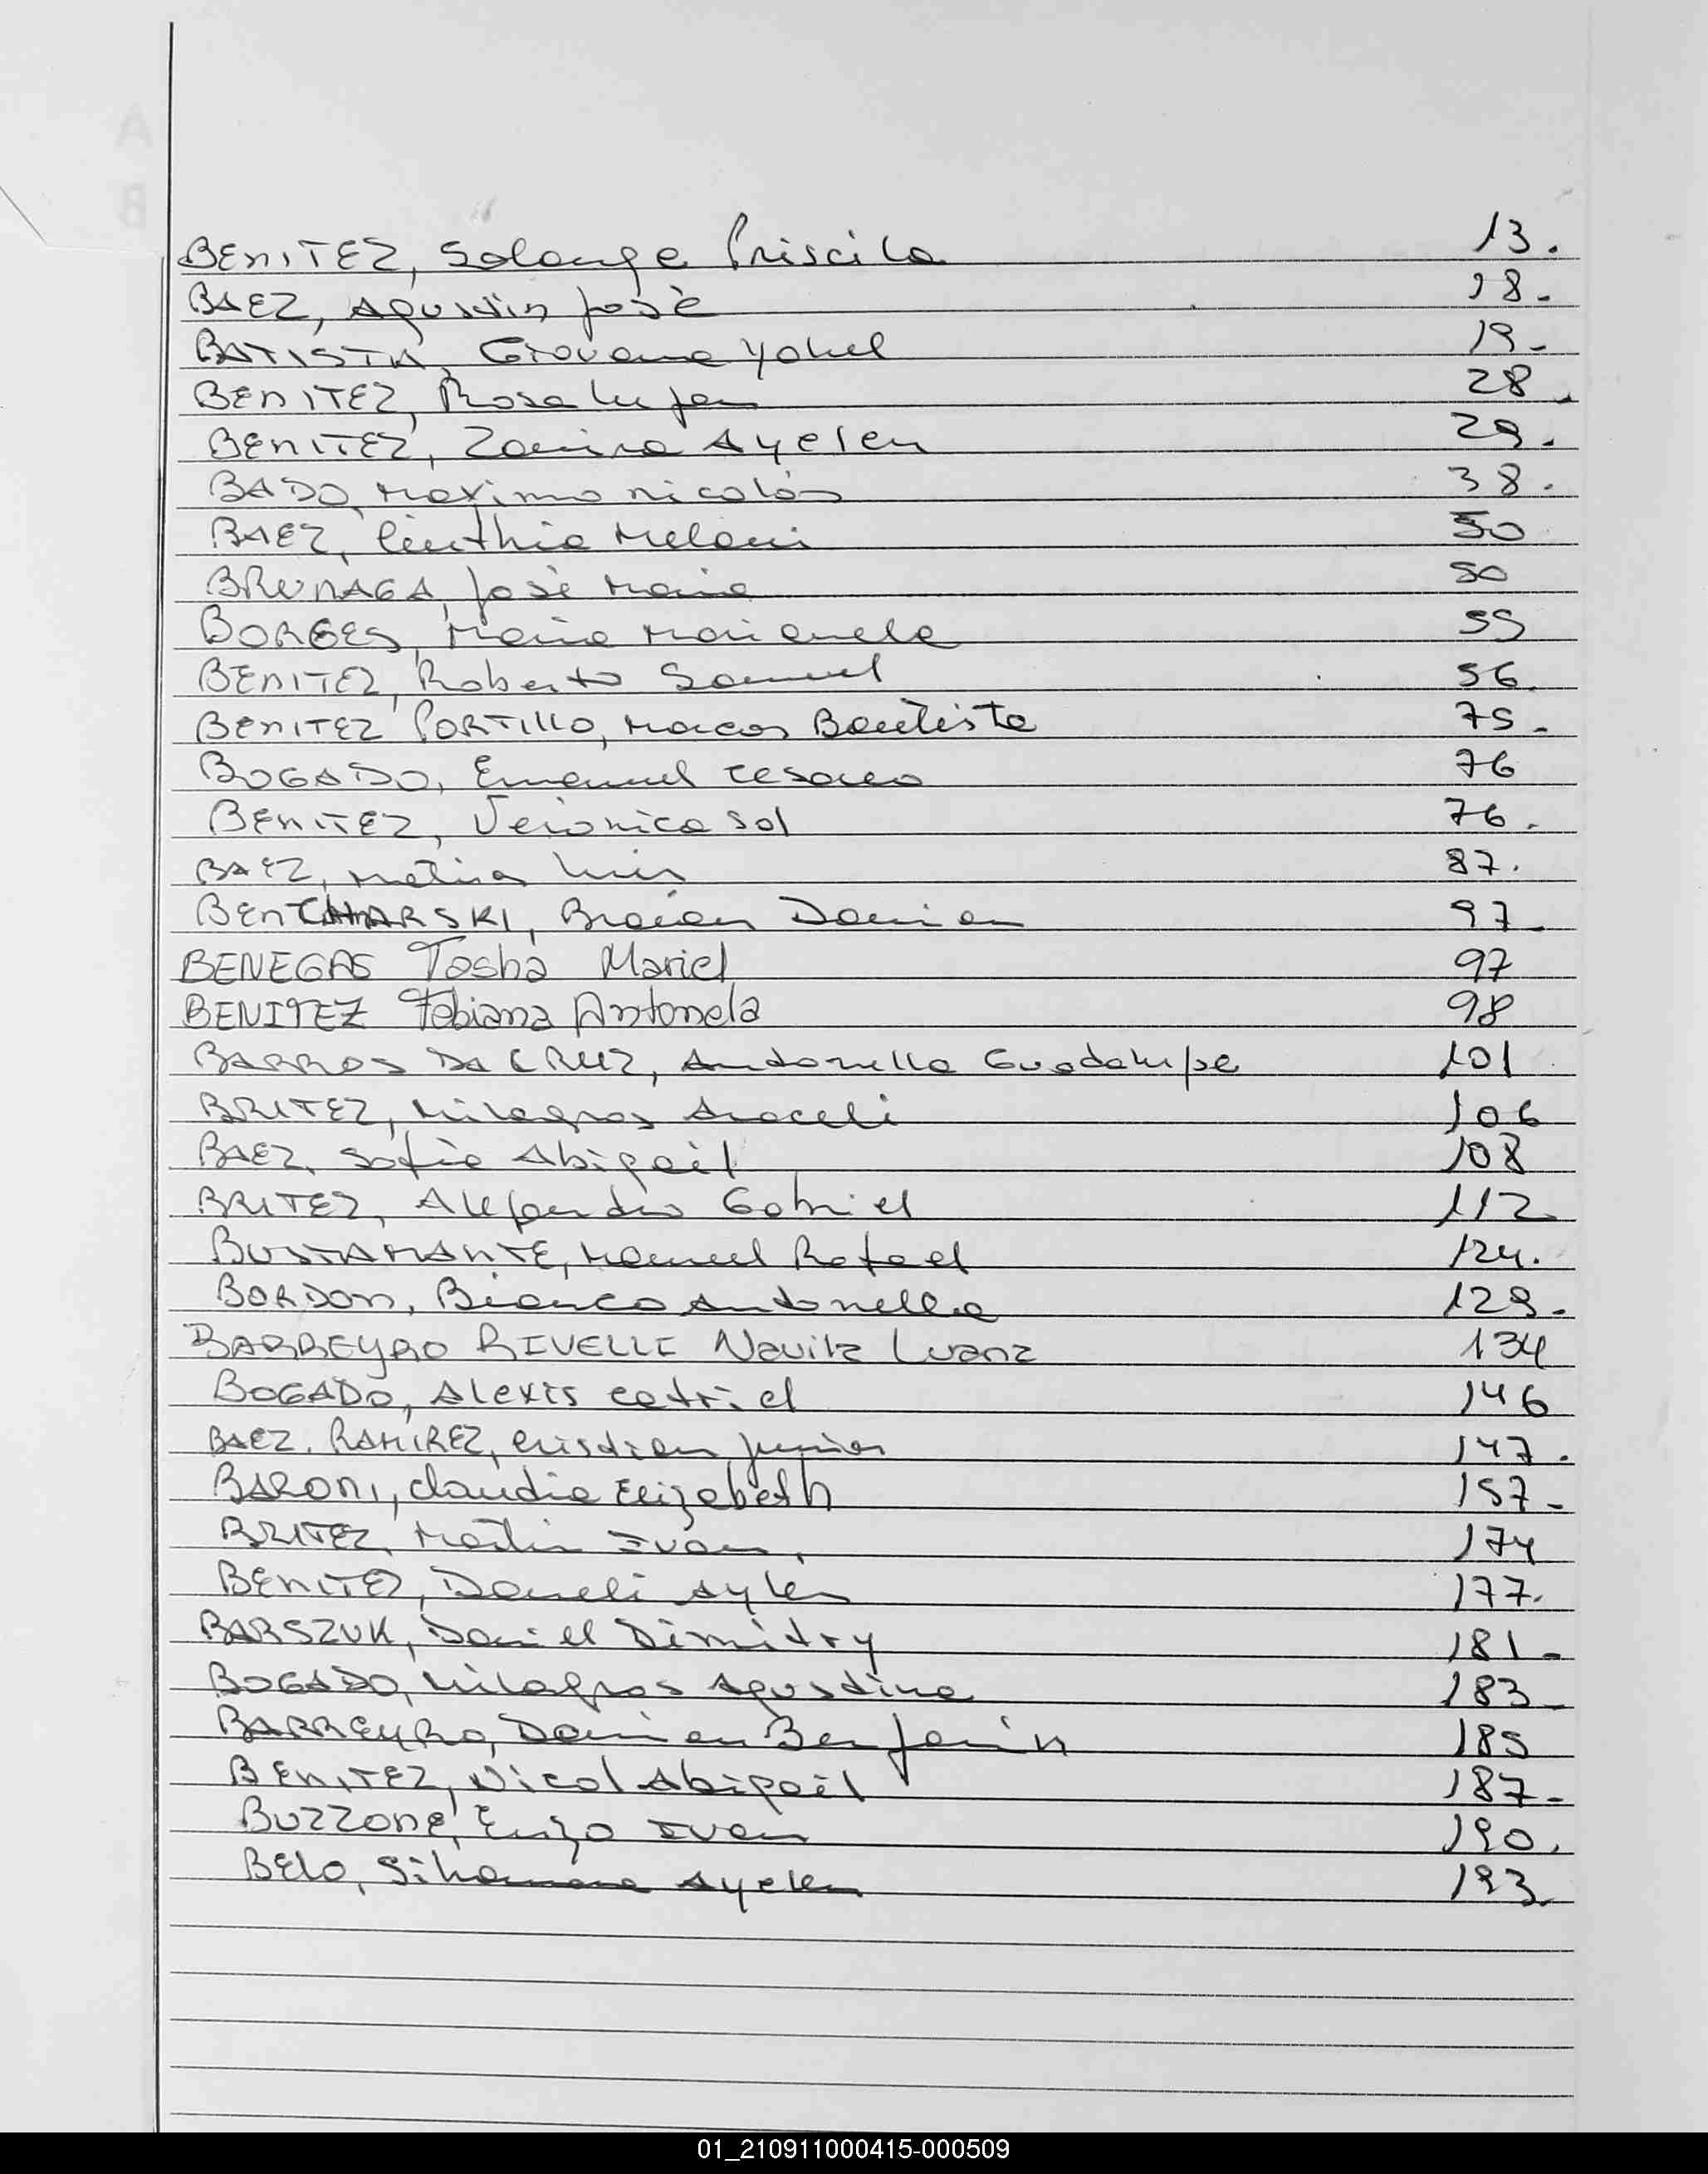 A
B
BENITEZ, Solange Priscila 13.
BAEZ, Agustin José 18.
BATISTA, Giovana Yakel 19.
BENITEZ, Rosa Lujan 28.
BENITEZ, Zamira Ayelen 29.
BADO, Maximo Nicolás 38.
BAEZ, Cinthia Melani 50
BRUNAGA, José Maria 50
BORGES, Maria Marianela 55
BENITEZ, Roberto Samuel 56.
BENITEZ PORTILLO, Marcos Bautista 75.
BOGADO, Emanuel 76
BENITEZ, Veronica Sol 76.
BAEZ, Matias Luis 87.
Braian Damian 97.
BENEGAS Tasha Mariel 97
BENITEZ Fabiana Antonela 98
BARROS DA CRUZ, Antonella Guadalupe 101
BRITEZ, Milagros Araceli 106
BAEZ, Sofia Abigail 108
BRITEZ, Alejandro Gabriel 112
BUSTAMANTE, Manuel Rafael 124.
BORDON, Bianca Antonella 129.
BARREYRO RIVELLI Navila Luana 134
BOGADO, Alexis Catriel 146
BAEZ. RAMIREZ, Cristian Junior 147.
BARONI, Claudia Elizabeth 157.
BRITEZ, Martin Ivan. 174
BENITEZ, Daneli Aylen 177.
BARSZUK, Daniel Dimitry 181.
BOGADO, Milagros Agustina 183
BARREYRO, Damian Benjamin 185
BENITEZ, Nicol Abigail 187.
BUZZONE, Enzo Ivan 190.
BELO, Ayelen 193.
01_210911000415-000509